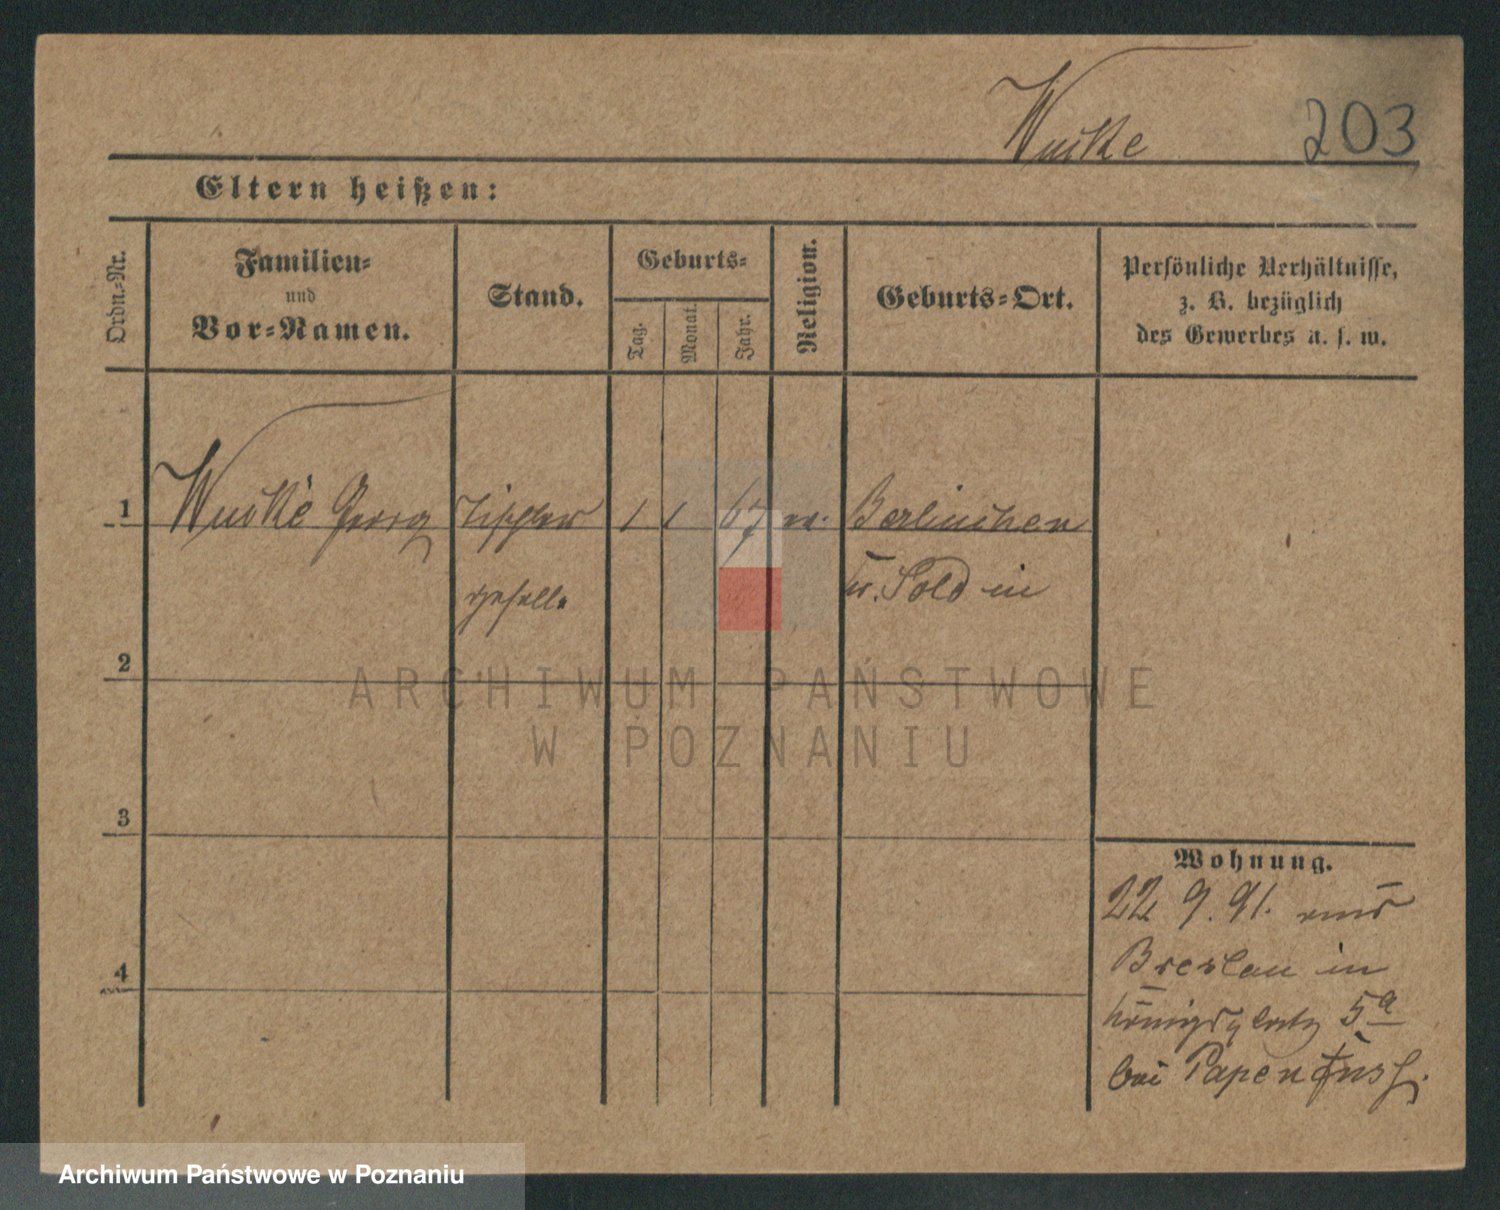 Wuske 203
Eltern heißen:
Ordn.-Nr.
Familien-
und
Vor-Namen.
Stand.
Geburts-
Tag.
Monat.
Jahr.
Religion.
Geburts-Ort.
Persönliche Verhältnisse,
z. B. bezüglich
des Gewerbes u. s. w.
1 Wuske Georg Tischler 1 1 67 ev. Berlinchen
geselle Kr. Soldin
2
3
4
Wohnung.
22 9. 91. aus
Breslau in
Königsplatz 5a
bei Papenfus
ARCHIWUM PAŃSTWOWE
W POZNANIU
Archiwum Państwowe w Poznaniu